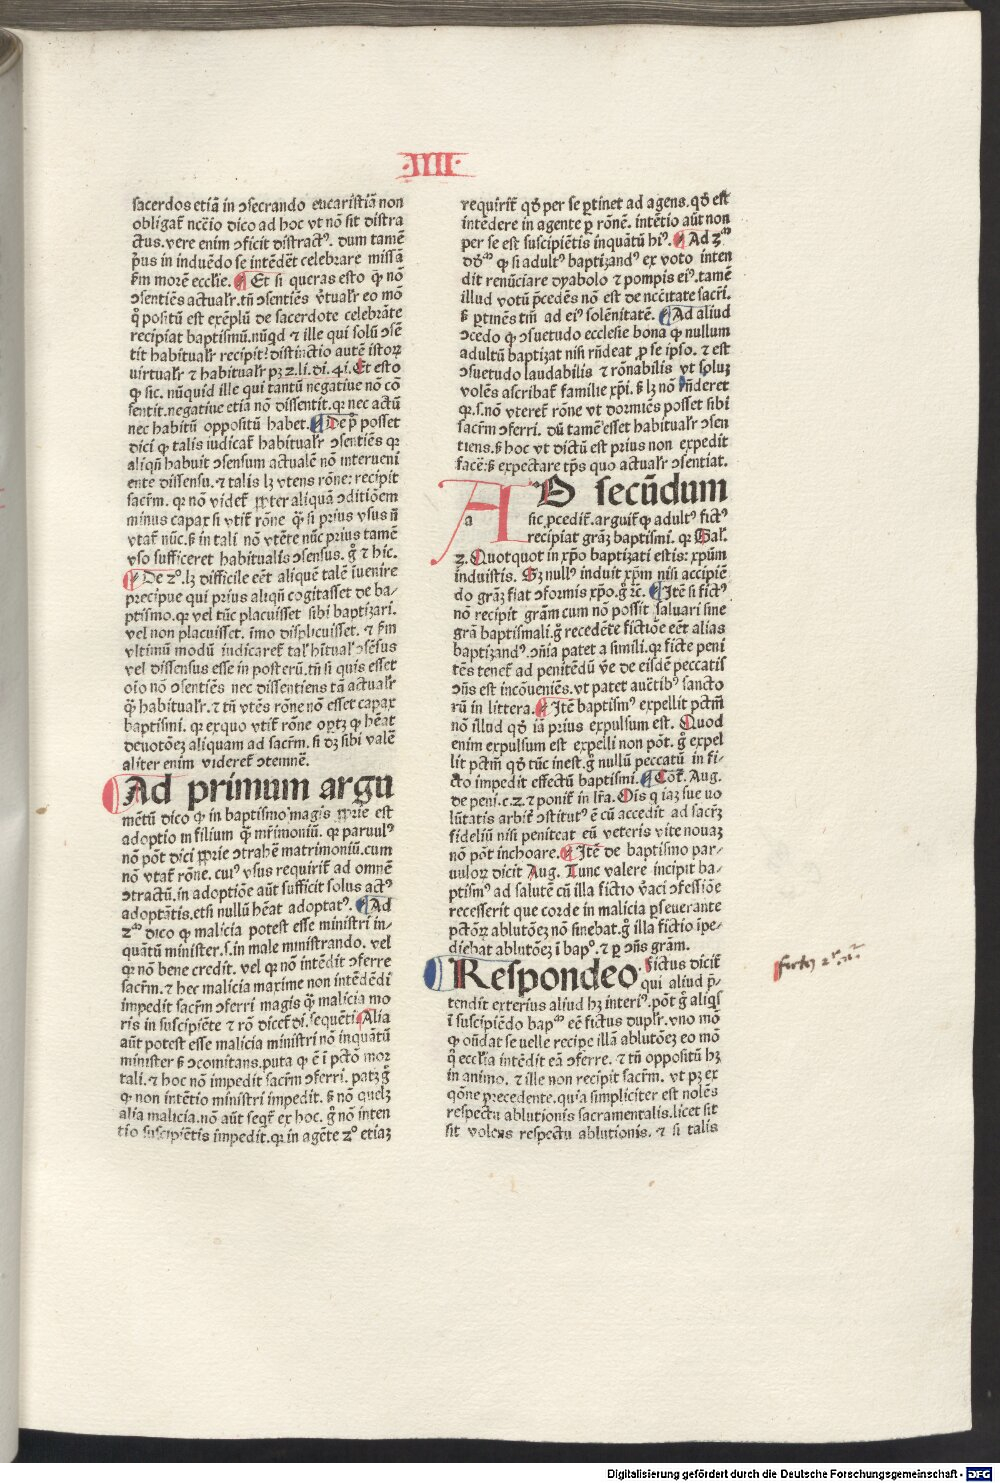 ·IIII·
sacerdos etiā in ↄsecrando eucaristiā non
obligat̄ ncēio dico ad hoc vt nō sit distra
ctus. vere enim ↄficit distractꝰ. dum tamē
p̄us in induēdo se intēdēt celebrare missā
ẜm morē ecclīe. Et si queras esto ꝙ nō
ↄsentiēs actual̄r. tn̄ ↄsentiēs v̄tual̄r eo mō
q̊ positū est exēplū de sacerdote celebrāte
recipiat baptismū. nūqd ⁊ ille qui solū ↄsē
tit habitual̄r recipit? distinctio autē istoꝝ
virtual̄r ⁊ habitual̄r pꝫ 2. li. di. 41. Et esto
ꝙ sic. nūquid ille qui tantū negatiue nō cō
sentit. negatiue etiā nō dissentit. qꝛ nec actū
nec habitū oppositū habet. De p̊ posset
dici ꝙ talis iudicat̄ habitual̄r ↄsentiēs qꝛ
aliqn̄ habuit ↄsensum actualē nō interueni
ente dissensu. ⁊ talis lꝫ vtens rōne: recipit
sacr̄m. qꝛ nō videt̄ ꝓpter aliquā ↄditiōem
minus capax si vtit̄ rōne q̄ꝫ si prius vsus n̄
vtat̄ nūc. ẜ in tali nō vtēte nūc prius tamē
vso sufficeret habitualis ↄsensus. g̊ ⁊ hic.
De 2º. lꝫ difficile eēt aliquē talē īuenire
precipue qui prius aliqn̄ cogitasset de ba-
ptismo. qꝛ vel tūc placuisset sibi baptizari.
vel non placuisset. īmo displicuisset. ⁊ ẜm
vltimū modū iudicaret̄ tal̄ hītual̄ ↄsēsus
vel dissensus esse in posterū. tn̄ si quis esset
oīo nō ↄsentiēs nec dissentiens tā actual̄r
q̄ꝫ habitual̄r. ⁊ tn̄ vtēs rōne nō esset capax
baptismi. qꝛ exquo vtit̄ rōne oꝑtꝫ ꝙ hēat
deuotōeꝫ aliquam ad sacr̄m. si dꝫ sibi valē
aliter enim videret̄ ↄtemnē.
Ad primum argu
mētū dico ꝙ in baptismo magis ꝓprie est
adoptio in filium q̄ꝫ mr̄imoniū. qꝛ paruulꝰ
nō pōt dici ꝓprie ↄtrahē matrimoniū. cum
nō vtat̄ rōne. cuiꝰ vsus requirit̄ ad omnē
ↄtractū. in adoptiōe aūt sufficit solus actꝰ
adoptātis. etsi nullū hēat adoptatꝰ. Ad
2ᵐ dico ꝙ malicia potest esse ministri in-
quātū minister. s. in male ministrando. vel
qꝛ nō bene credit. vel qꝛ nō intēdit ↄferre
sacr̄m. ⁊ hec malicia maxime non intēdēdi
impedit sacr̄m ↄferri magis q̄ꝫ malicia mo
ris in suscipiēte ⁊ rō dicet̄ di. sequēti. Alia
aūt potest esse malicia ministri nō inquātū
minister ẜ ↄcomitans. puta ꝙ ē ī pctō mor
tali. ⁊ hoc nō impedit sacr̄m ↄferri. patꝫ g̊
ꝙ non intētio ministri impedit. ẜ nō quelꝫ
alia malicia. nō aūt seqt̄ ex hoc. g̊ nō inten
tio suscipiētis impedit. qꝛ in agēte 2º etiaꝫ
requirit̄ qd̄ per se ꝑtinet ad agens. qd̄ est
intēdere in agente ꝑ rōnē. intētio aūt non
per se est suscipiētis inquātū hiꝰ. Ad 3ᵐ
dd̄ᵐ ꝙ si adultꝰ baptizandꝰ ex voto inten
dit renūciare dyabolo ⁊ pompis eiꝰ. tamē
illud votū p̄cedēs nō est de ncc̄itate sacr̄i.
ẜ ꝑtinēs tm̄ ad eiꝰ solēnitatē. Ad aliud
ↄcedo ꝙ ↄsuetudo ecclesie bona ꝙ nullum
adultū baptizat nisi rn̄deat ꝓ se ipso. ⁊ est
ↄsuetudo laudabilis ⁊ rōnabilis vt soluꝫ
volēs ascribat̄ familie xp̄i. ẜ lꝫ nō rn̄deret
qꝛ. s. nō vteret̄ rōne vt dormiēs posset sibi
sacr̄m ↄferri. dū tamē esset habitual̄r ↄsen
tiens. ẜ hoc vt dictū est prius non expedit
facē: ẜ expectare tp̄s quo actual̄r ↄsentiat.
AD secūdum
a
sic ꝓcedit̄. arguit̄ ꝙ adultꝰ fictꝰ
recipiat grāꝫ baptismi. qꝛ Gal̄.
2. Quotquot in xp̄o baptizati estis: xp̄um
induistis. Sꝫ nullꝰ induit xp̄m nisi accipiē
do grāꝫ fiat ↄformis xp̄o. g̊ ⁊c̄. Itē si fictꝰ
nō recipit grām cum nō possit saluari sine
grā baptismali. g̊ recedēte fictiōe eēt alias
baptizandꝰ. ↄn̄ia patet a simili. qꝛ ficte peni
tēs tenet̄ ad penitēdū v̄e de eisdē peccatis
ↄn̄s est incōueniēs. vt patet auctībꝰ sancto
rū in littera. Itē baptismꝰ expellit pctm̄
nō illud qd̄ iā prius expulsum est. Quod
enim expulsum est expelli non pōt. g̊ expel
lit pctm̄ qd̄ tūc inest. g̊ nullū peccatū in fi-
cto impedit effectū baptismi. Cōt̄. Aug.
de peni. c. 2. ⁊ ponit̄ in lr̄a. Oīs q iaꝫ sue vo
lūtatis arbit̄ ↄstitutꝰ ē cū accedit ad sacr̄ꝫ
fideliū nisi peniteat eū veteris vite nouaꝫ
nō pōt inchoare. Itē de baptismo par-
uuloꝝ dicit Aug. Tunc valere incipit ba-
ptismꝰ ad salutē cū illa fictio v̄aci ↄfessiōe
recesserit que corde in malicia ꝑseuerante
pctōꝝ ablutōeꝫ nō sinebat. g̊ illa fictio īpe-
diebat ablutōeꝫ ī bapº. ⁊ ꝑ ↄn̄s grām.
Respondeo fictus dicit̄
qui aliud p̄-
tendit exterius aliud hꝫ interiꝰ. pōt g̊ aliqs
ī suscipiēdo bapᵐ eē fictus dupl̄r. vno mō
ꝙ on̄dat se velle recipe illā ablutōeꝫ eo mō
q̊ eccl̄ia intēdit eā ↄferre. ⁊ tn̄ oppositū hꝫ
in animo. ⁊ ille non recipit sacr̄m. vt pꝫ ex
qōne precedente. quia simpliciter est nolēs
respectu ablutionis sacramentalis. licet sit
sit volens respectu ablutionis. ⁊ si talis
Digitalisierung gefördert durch die Deutsche Forschungsgemeinschaft - DFG